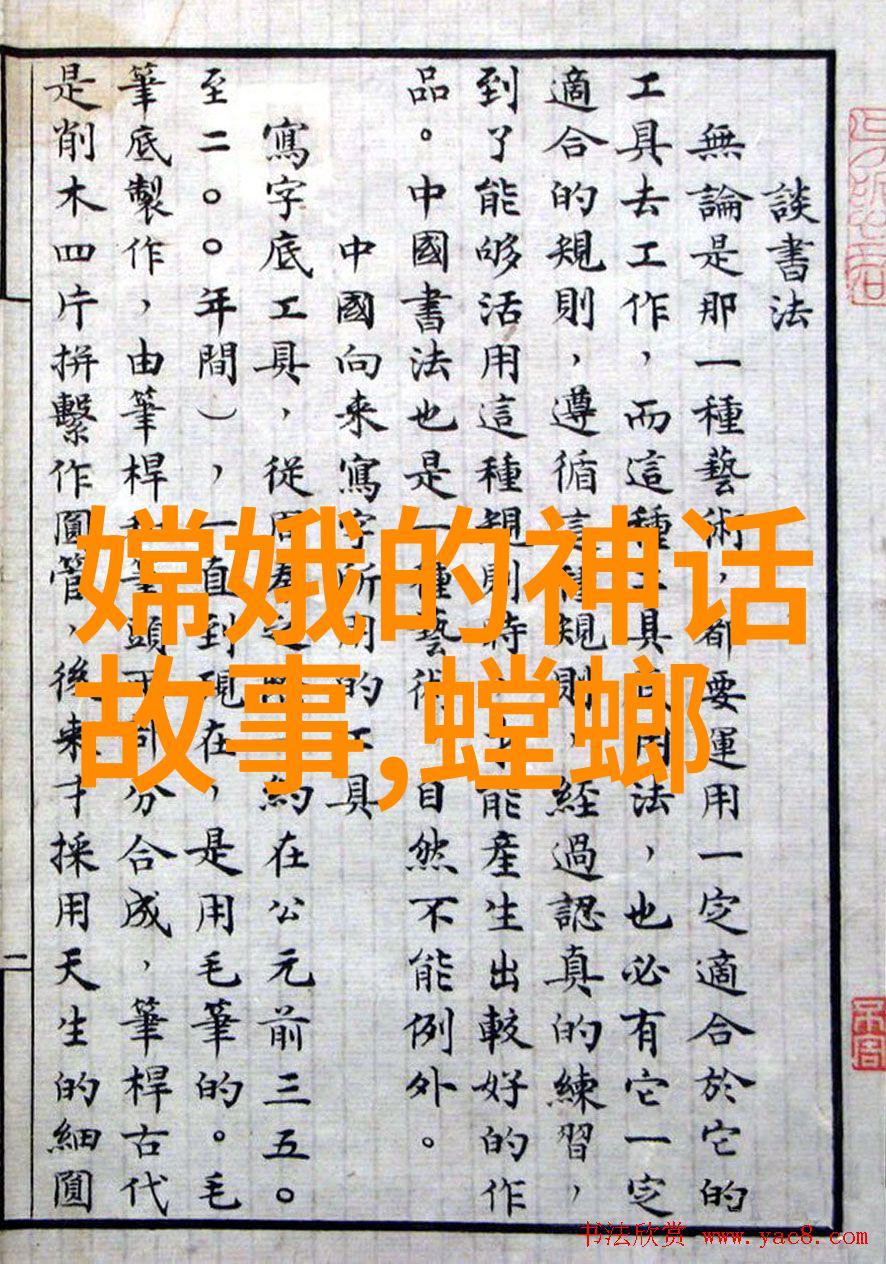 談書法
無論是那一種藝術，都要運用一定適合於它的
工具去工作，而這種工具底用法，也必有它一定
適合的規則，遵循這種規則，經過認真的練習，
到了能够活用這種規則時，才能產生出較好的作
品。中國書法也是一種藝術，自然不能例外。
中國向来寫字所用的工具
寫字底工具，從周秦之際 約在公元前三五〇
至二〇〇年間），一直到現在，是用毛筆的。毛
筆底製作，由筆桿 筆頭 部分合成，筆桿古代
是削木四片拼繫作圓管，後来才採用天生的細圓
二
嫦娥的神话
故事,螳螂
书法欣赏 www.yac8.com